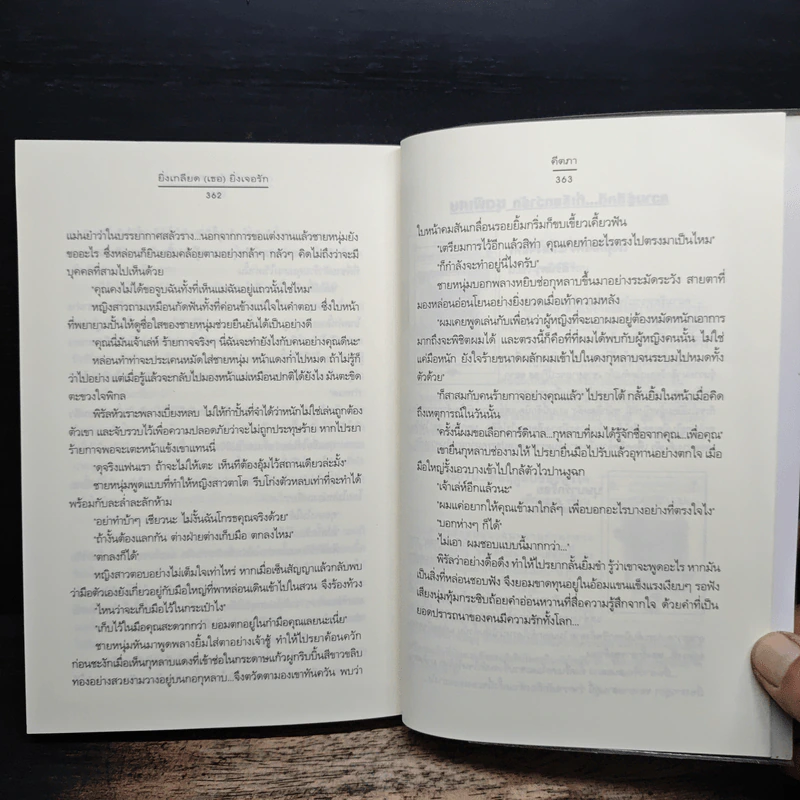 ยิ่งเกลียด (เธอ) ยิ่งเจอรัก
362
แม่นยำว่าในบรรยากาศสลัวราง...นอกจากการขอแต่งงานแล้วชายหนุ่มยัง
ขออะไร ซึ่งหล่อนก็ยินยอมคล้อยตามอย่างกล้าๆ กลัวๆ คิดไม่ถึงว่าจะมี
บุคคลที่สามไปเห็นด้วย
"คุณคงไม่ได้ขอจูบฉันทั้งที่เห็นแม่ฉันอยู่แถวนั้นใช่ไหม"
หญิงสาวถามเหมือนกัดฟันทั้งที่ค่อนข้างแน่ใจในคำตอบ ซึ่งใบหน้า
ที่พยายามปั้นให้ดูซื่อใสของชายหนุ่มช่วยยืนยันได้เป็นอย่างดี
"คุณนี่มันเจ้าเล่ห์ ร้ายกาจจริงๆ นี่ฉันจะทำยังไงกับคนอย่างคุณดีนะ"
หล่อนทำท่าจะประเคนหมัดใส่ชายหนุ่ม หน้าแดงก่ำไปหมด ถ้าไม่รู้ก็
ว่าไปอย่าง แต่เมื่อรู้แล้วจะกลับไปมองหน้าแม่เหมือนปกติได้ยังไง มันตะขิด
ตะขวงใจพิกล
พิรัลหัวเราะพลางเบี่ยงหลบ ไม่ให้กำปั้นที่จำได้ว่าหนักไม่ใช่เล่นถูกต้อง
ตัวเขา และจับรวบไว้เพื่อความปลอดภัยว่าจะไม่ถูกประทุษร้าย หากไปรยา
ร้ายกาจพอจะเตะหน้าแข้งเขาแทนนี่
"ดุจริงแฟนเรา ถ้าจะไม่ให้เตะ เห็นทีต้องอุ้มไว้สถานเดียวล่ะมั้ง"
ชายหนุ่มพูดแบบที่ทำให้หญิงสาวตาโต รีบโก่งตัวหลบเท่าที่จะทำได้
พร้อมกับละล่ำละลักห้าม
"อย่าทำบ้าๆ เชียวนะ ไม่งั้นฉันโกรธคุณจริงด้วย"
"ถ้างั้นต้องแลกกัน ต่างฝ่ายต่างเก็บมือ ตกลงไหม"
"ตกลงก็ได้"
หญิงสาวตอบอย่างไม่เต็มใจเท่าไหร่ หากเมื่อเซ็นสัญญาแล้วกลับพบ
ว่ามือตัวเองยังเกี่ยวอยู่กับมือใหญ่ที่พาหล่อนเดินเข้าไปในสวน จึงร้องท้วง
"ไหนว่าจะเก็บมือไว้ในกระเป๋าไง"
"เก็บไว้ในมือคุณสะดวกกว่า ยอมตกอยู่ในกำมือคุณเลยนะเนี่ย"
ชายหนุ่มหันมาพูดพลางยิ้มใส่ตาอย่างเจ้าชู้ ทำให้ไปรยาค้อนควัก
ก่อนชะงักเมื่อเห็นกุหลาบแดงที่เข้าช่อในกระดาษแก้วผูกริบบิ้นสีขาวขลิบ
ทองอย่างสวยงามวางอยู่บนกอกุหลาบ...จึงตวัดตามองเขาทันควัน พบว่า
คีตภา
363
ใบหน้าคมสันเกลื่อนรอยยิ้มกริ่มก็ขบเขี้ยวเคี้ยวฟัน
"เตรียมการไว้อีกแล้วสิท่า คุณเคยทำอะไรตรงไปตรงมาเป็นไหม"
"ก็กำลังจะทำอยู่นี่ไงครับ"
ชายหนุ่มบอกพลางหยิบช่อกุหลาบขึ้นมาอย่างระมัดระวัง สายตาที่
มองหล่อนอ่อนโยนอย่างยิ่งยวดเมื่อเท้าความหลัง
"ผมเคยพูดเล่นกับเพื่อนว่าผู้หญิงที่จะเอาผมอยู่ต้องหมัดหนักเอาการ
มากถึงจะพิชิตผมได้ และตรงนี้ก็คือที่ที่ผมได้พบกับผู้หญิงคนนั้น ไม่ใช่
แค่มือหนัก ยังใจร้ายขนาดผลักผมเข้าไปในดงกุหลาบจนระบมไปหมดทั้ง
ตัวด้วย"
"ก็สาสมกับคนร้ายกาจอย่างคุณแล้ว" ไปรยาโต้ กลั้นยิ้มในหน้าเมื่อคิด
ถึงเหตุการณ์ในวันนั้น
"ครั้งนี้ผมขอเลือกคาร์ดินาล...กุหลาบที่ผมได้รู้จักชื่อจากคุณ...เพื่อคุณ"
เขายื่นกุหลาบช่องามให้ ไปรยายื่นมือไปรับแล้วอุทานอย่างตกใจ เมื่อ
มือใหญ่รั้งเอวบางเข้าไปใกล้ตัวไวปานงูฉก
"เจ้าเล่ห์อีกแล้วนะ"
"ผมแค่อยากให้คุณเข้ามาใกล้ๆ เพื่อบอกอะไรบางอย่างที่ตรงใจไง"
"บอกห่างๆ ก็ได้"
"ไม่เอา ผมชอบแบบนี้มากกว่า..."
พิรัลว่าอย่างดื้อดึง ทำให้ไปรยากลั้นยิ้มขำ รู้ว่าเขาจะพูดอะไร หากมัน
เป็นสิ่งที่หล่อนชอบฟัง จึงยอมขาดทุนอยู่ในอ้อมแขนแข็งแรงเงียบๆ รอฟัง
เสียงนุ่มทุ้มกระซิบถ้อยคำอ่อนหวานที่สื่อความรู้สึกจากใจ ด้วยคำที่เป็น
ยอดปรารถนาของคนมีความรักทั้งโลก...